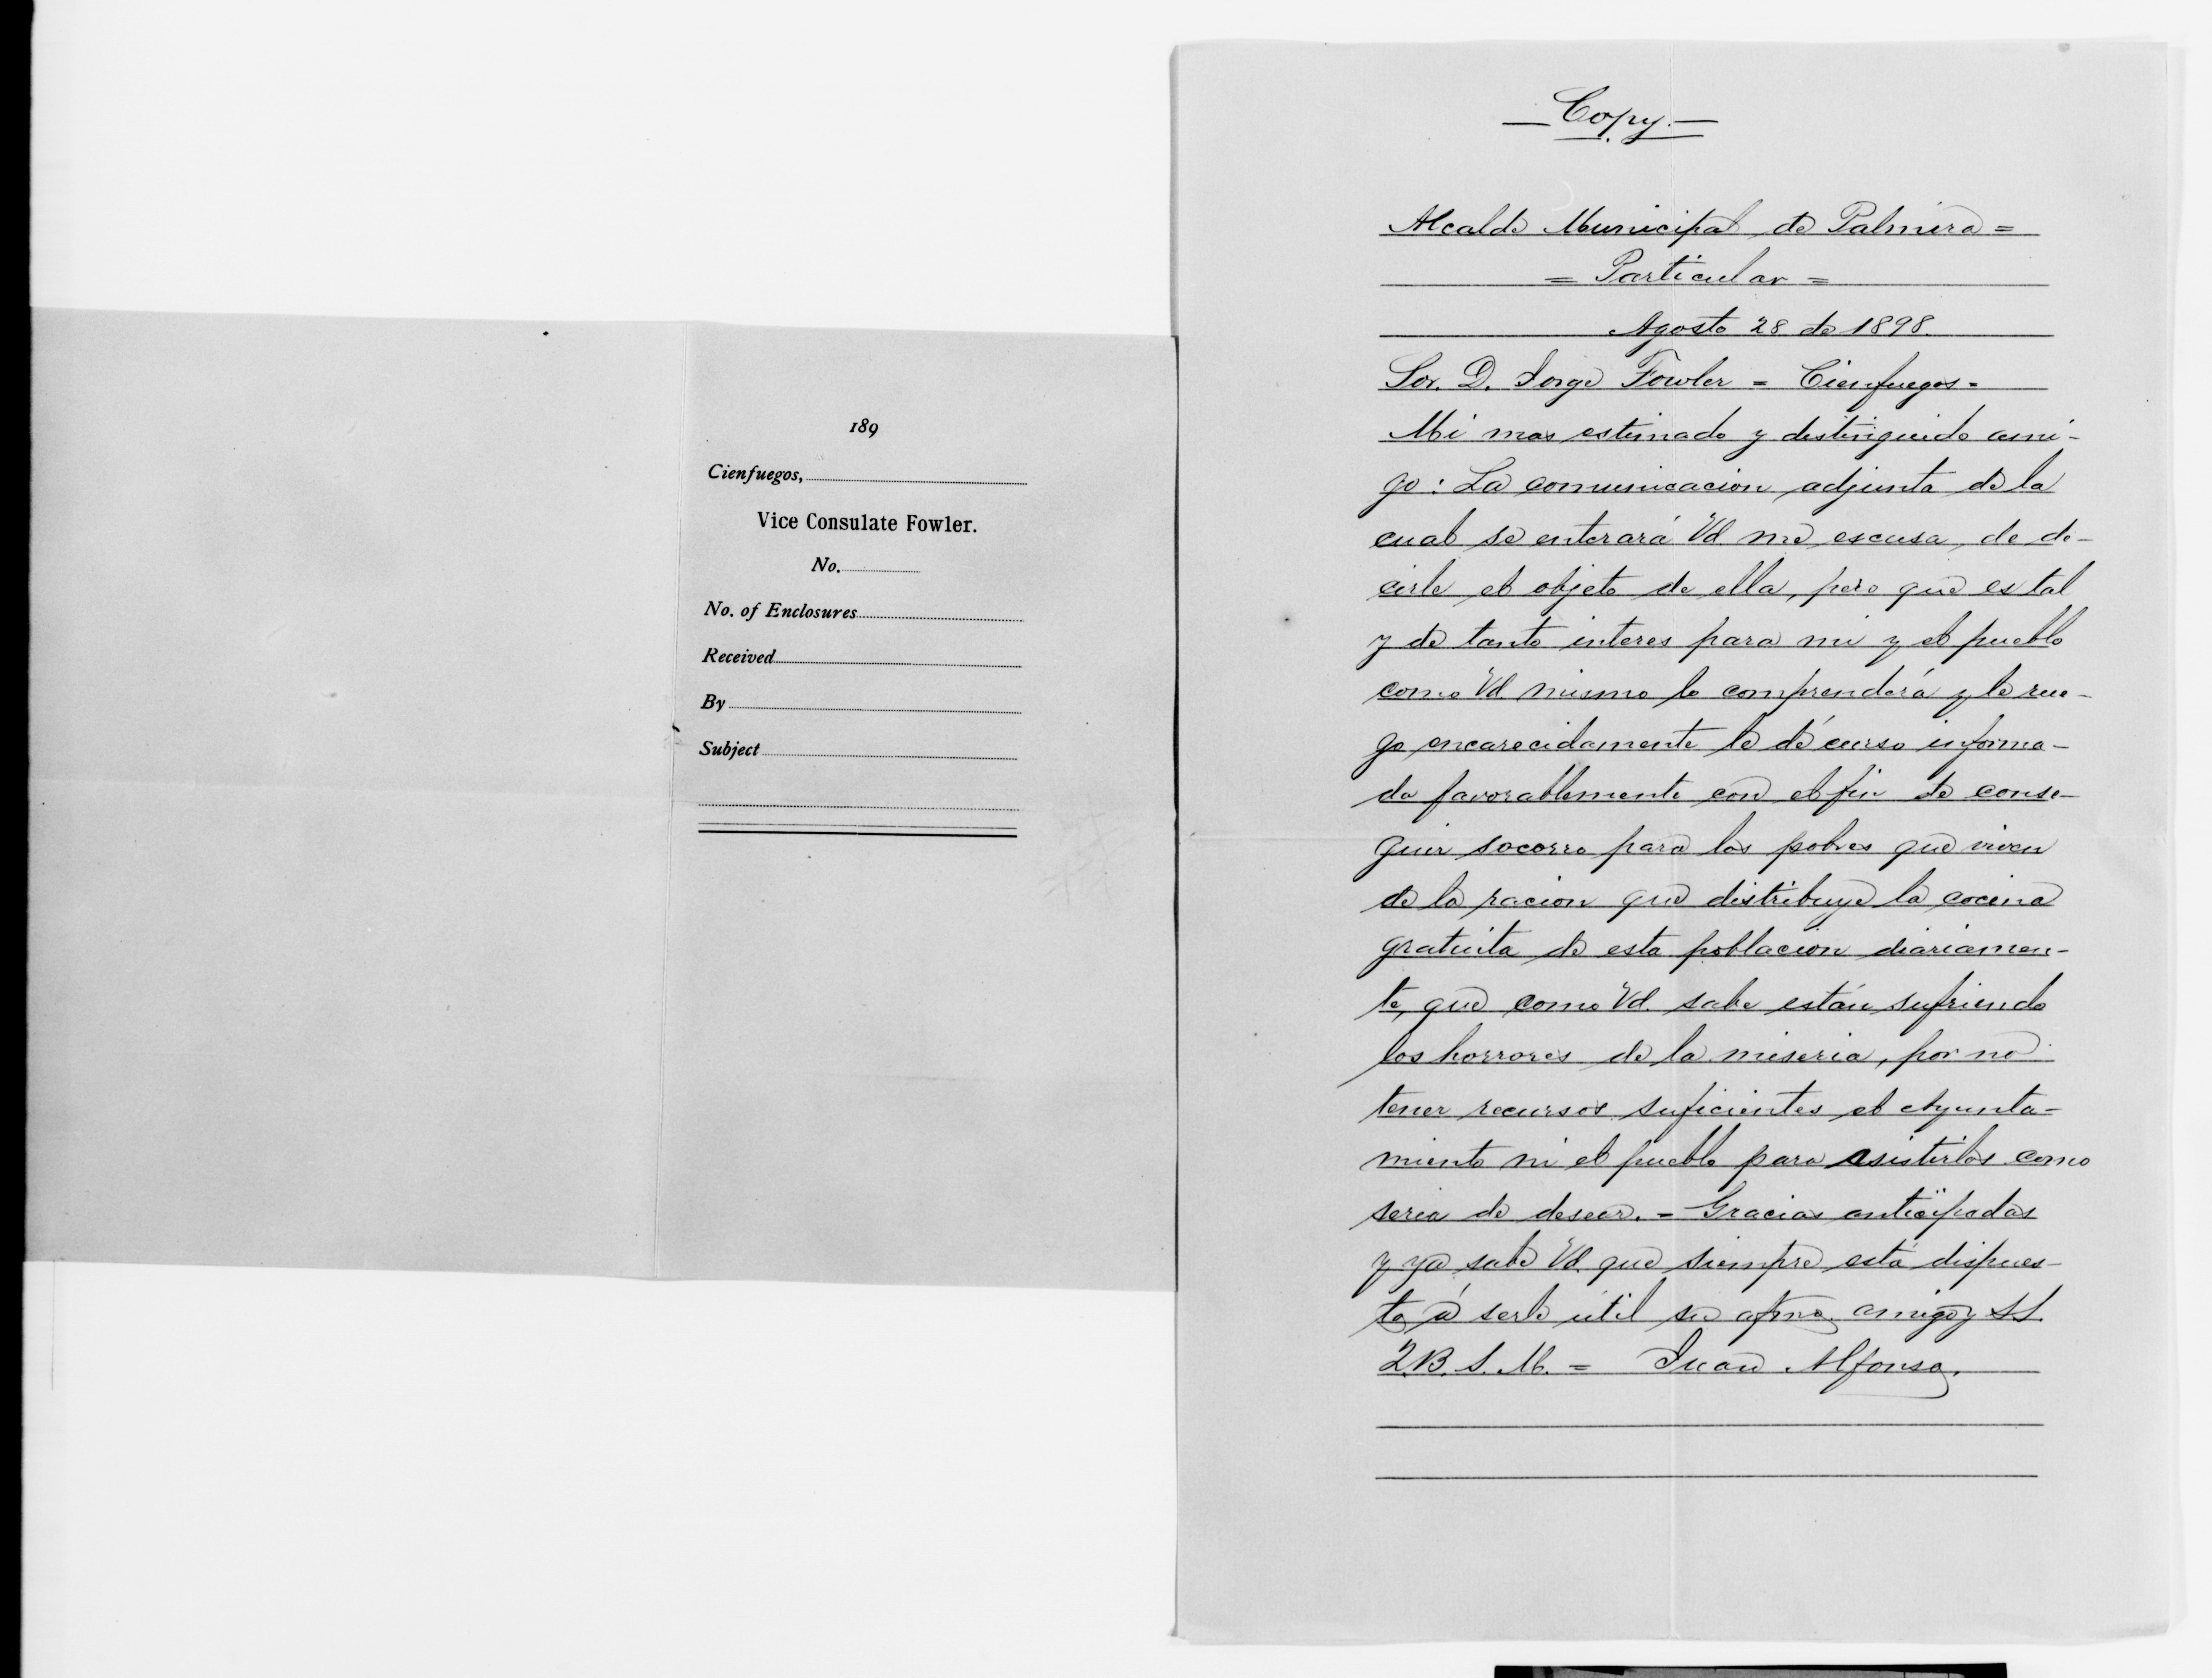 189
Cienfuegos,
Vice Consulate Fowler.
No.
No. of Enclosures
Received
By
Subject
— Copy. —
Alcalde Municipal de Palmira =
= Particular =
Agosto 28 de 1898.
Sor. D. Jorge Fowler = Cienfuegos =
Mi mas estimado y distinguido ami-
go: La comunicacion adjunta de la
cual se enterará Vd. me escusa de de-
cirle el objeto de ella, pero que es tal
y de tanto interes para mi y el pueblo
como Vd. mismo lo comprenderá y le rue-
go encarecidamente le dé curso informa-
da favorablemente con el fin de conse-
guir socorro para los pobres que viven
de la racion que distribuye la cocina
gratuita de esta poblacion diariamen-
te, que como Vd. sabe están sufriendo
los horrores de la miseria, por no
tener recursos suficientes el Ayunta-
miento ni el pueblo para asistirlos como
seria de desear. = Gracias anticipadas
y ya sabe Vd. que siempre está dispues-
to á serle útil su afmo. amigo y S.S.
Q.B.S.M. = Juan Alfonso.